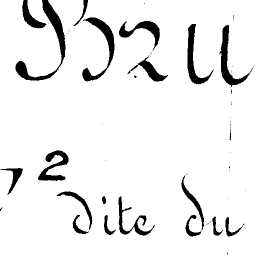 Bru
2
dite du